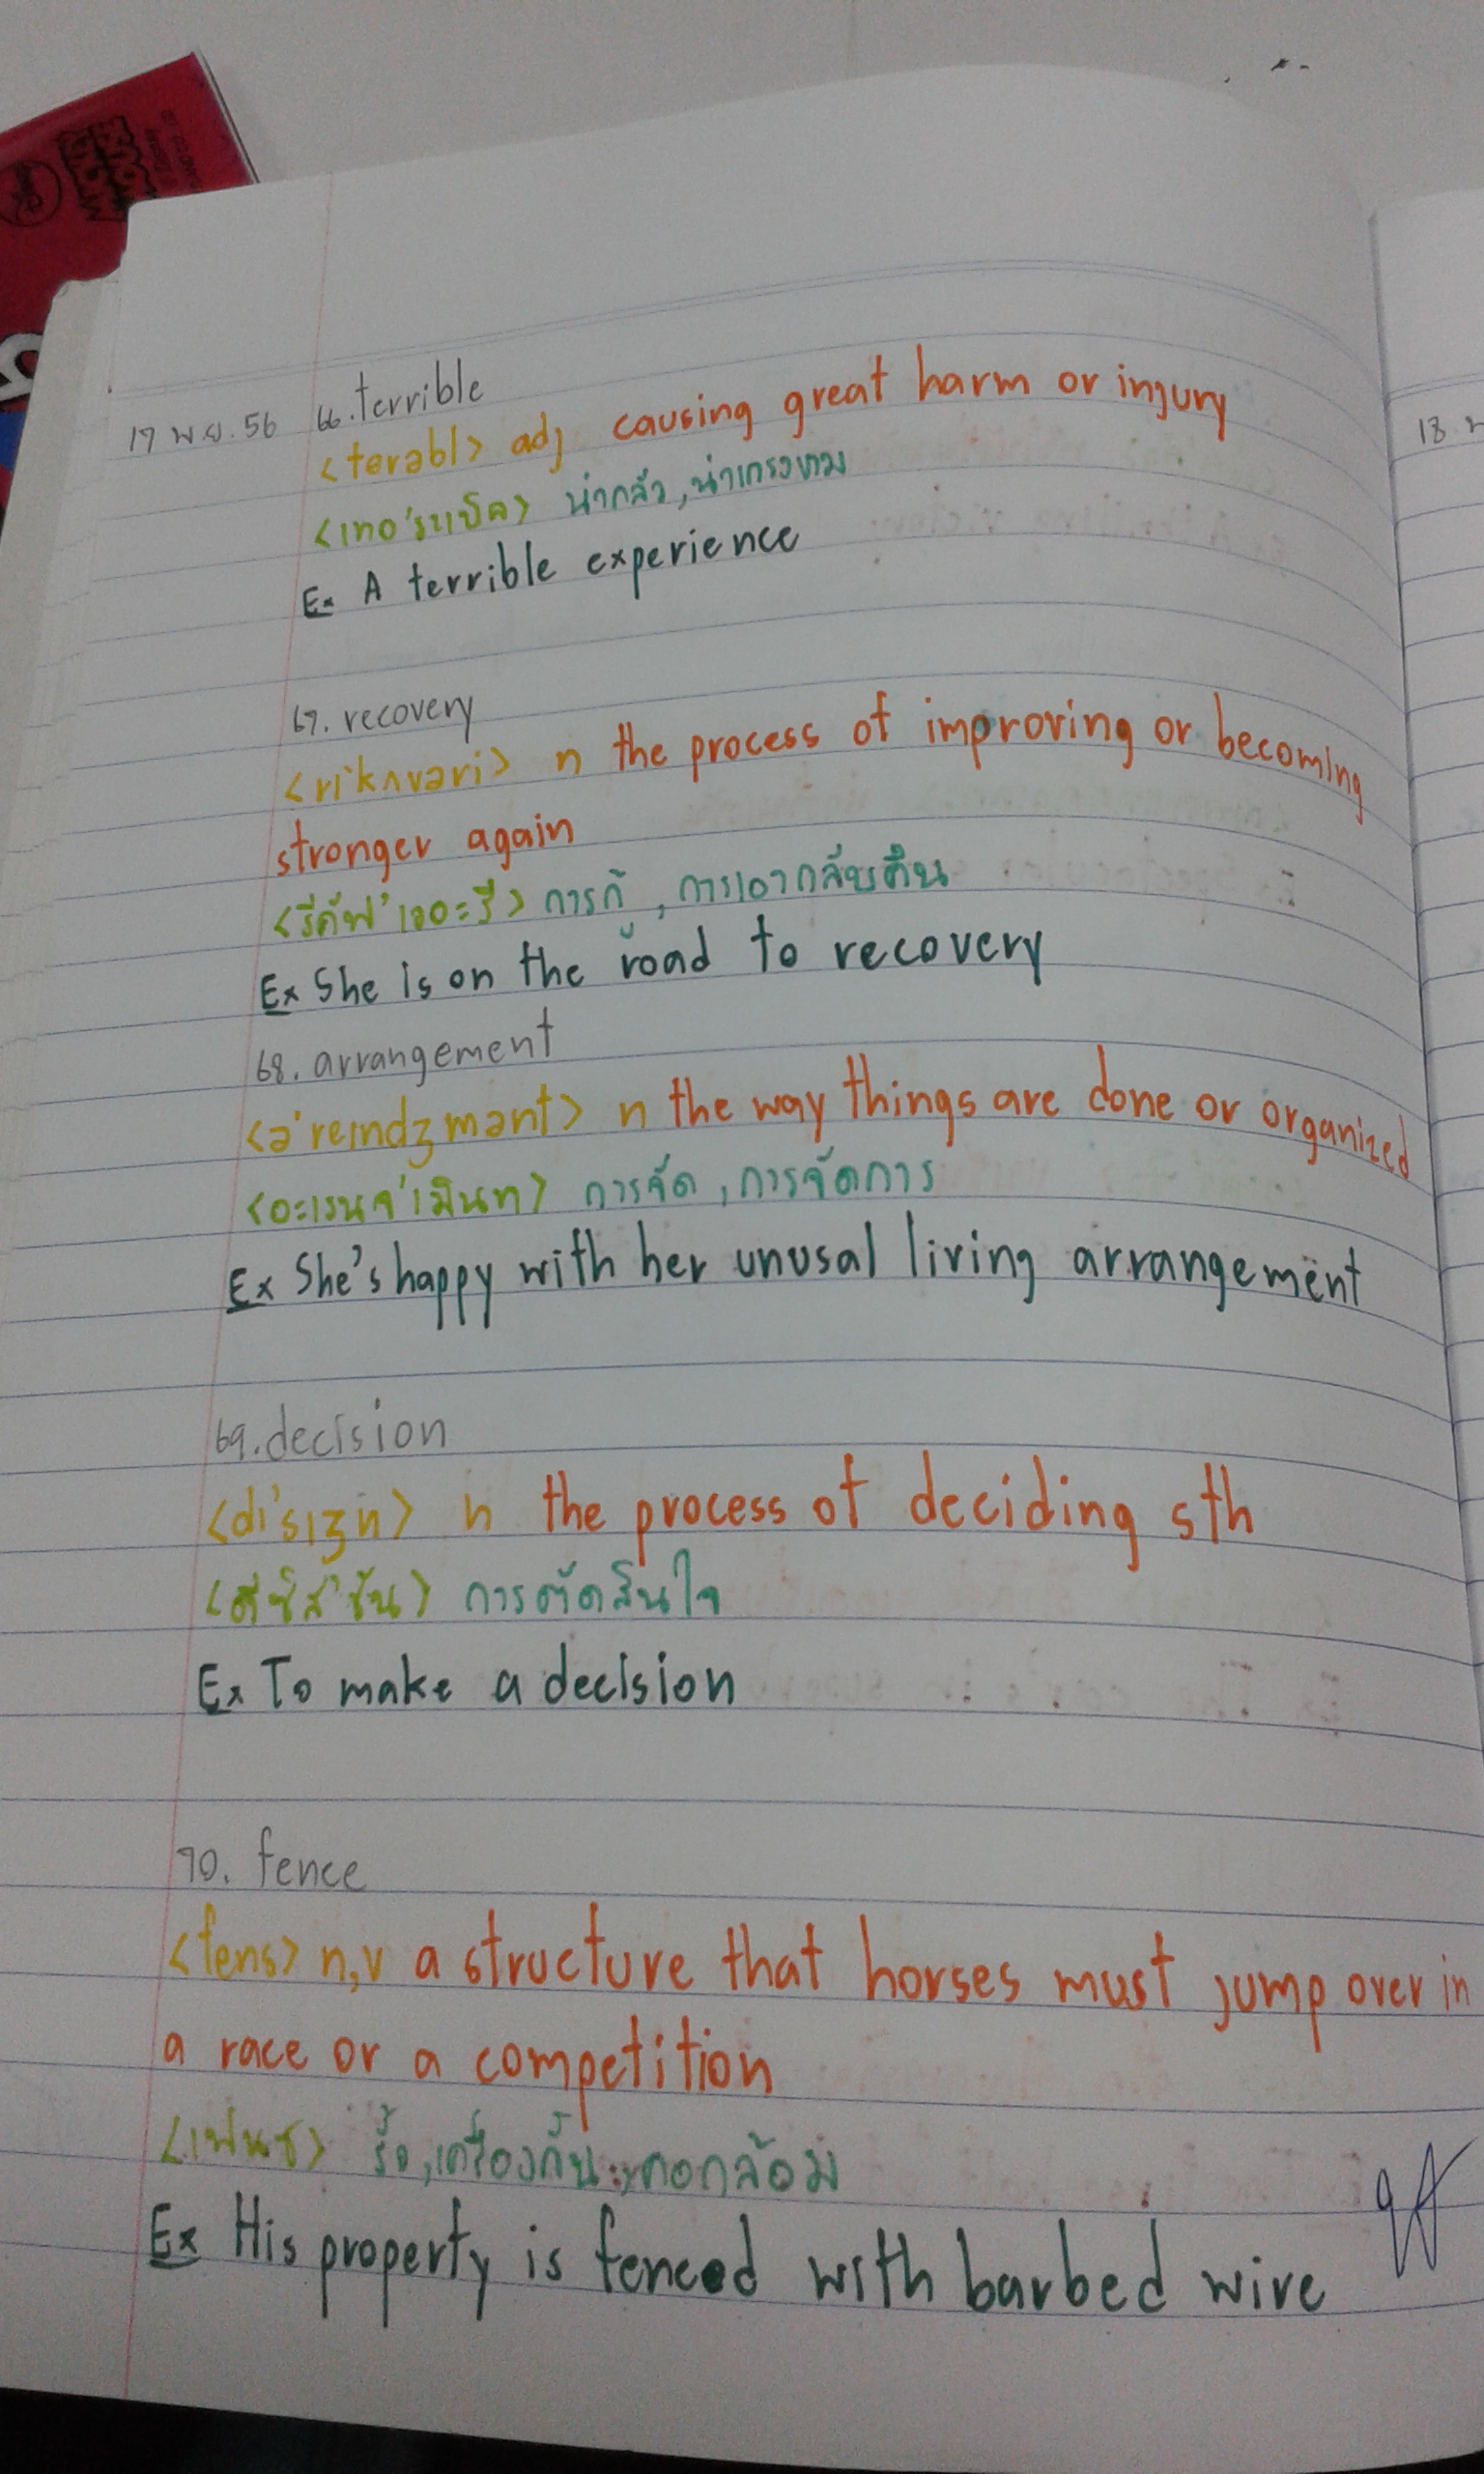 17 พ.ย. 56 66. terrible
<terəbl> adj causing great harm or injury
<เทอ'ระเบิล> น่ากลัว, น่าเกรงขาม
Ex A terrible experience
67. recovery
<ri'kʌvəri> n the process of improving or becoming
stronger again
<รีคัฟ'เออะรี> การกู้, การเอากลับคืน
Ex She is on the road to recovery
68. arrangement
<ə'reındʒmənt> n the way things are done or organized
<อะเรนจ'เมินท> การจัด, การจัดการ
Ex She's happy with her unusal living arrangement
69. decision
<di'sıʒn> n the process of deciding sth
<ดีซิส'ชัน> การตัดสินใจ
Ex To make a decision
70. fence
<fens> n,v a structure that horses must jump over in
a race or a competition
<เฟนซ> รั้ว, เครื่องกั้น, คอกล้อม
Ex His property is fenced with barbed wire
18